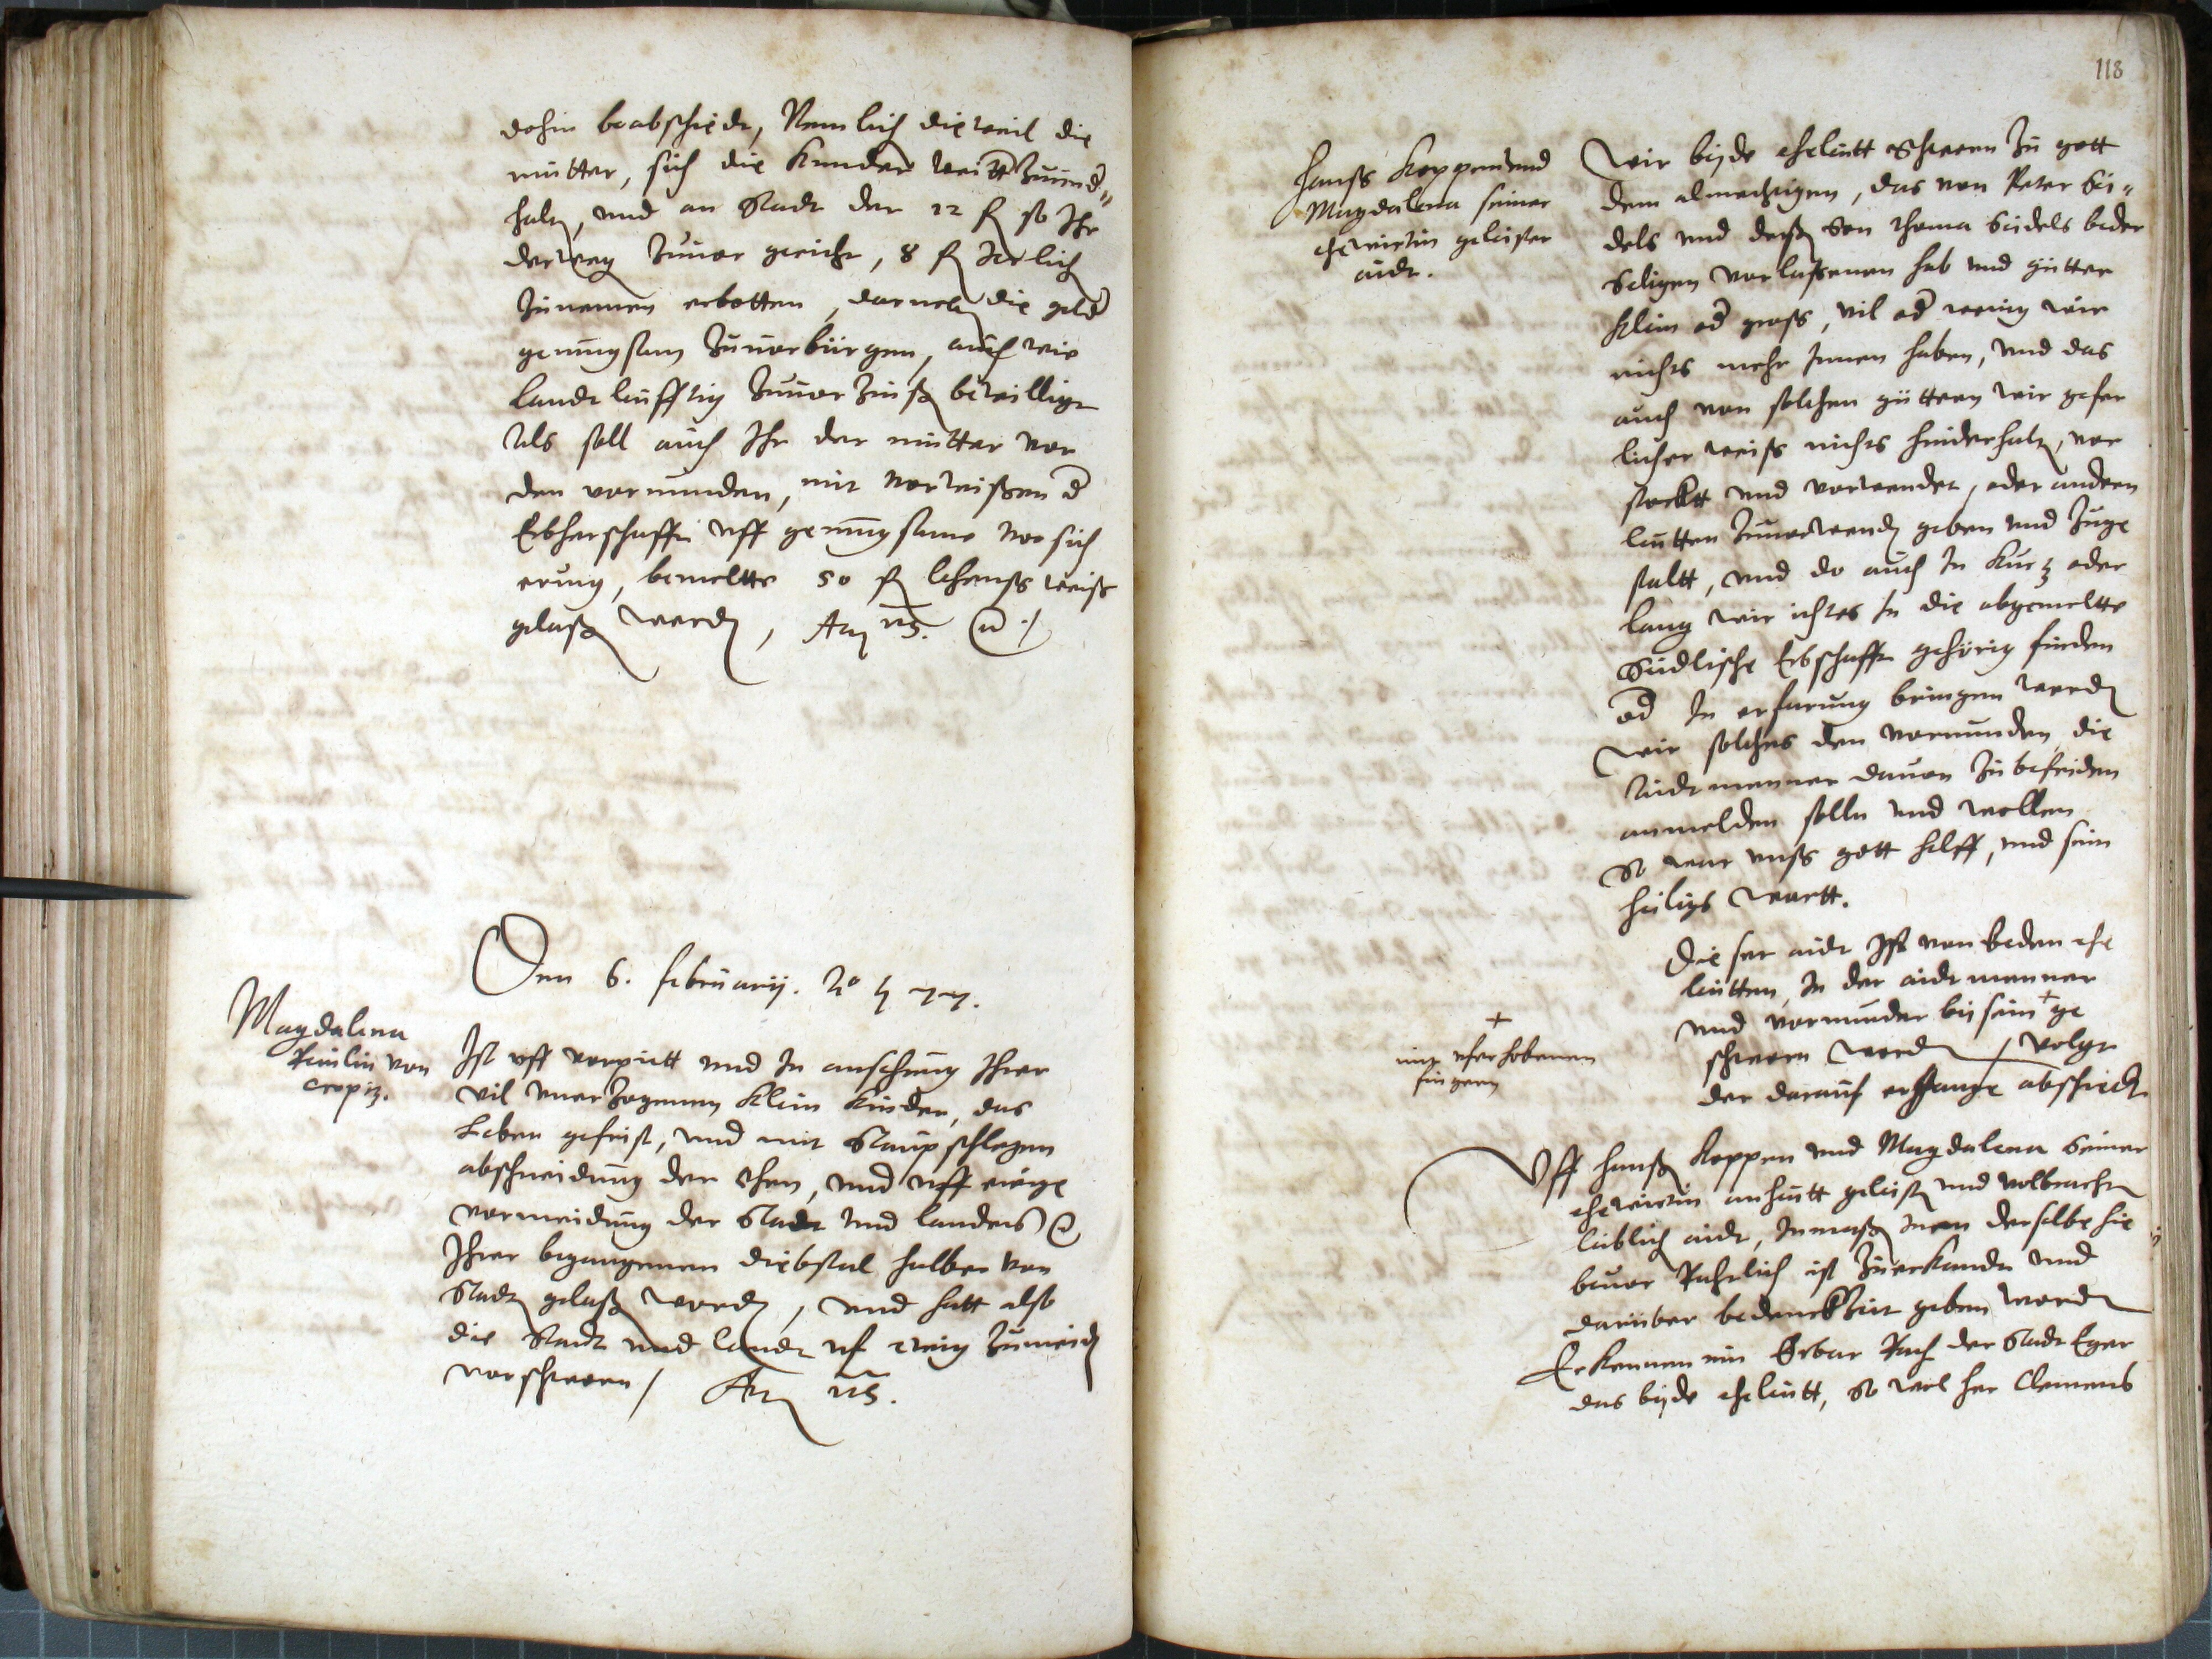 dohin beabschidt, Nemlich dieweil die
mutter, sich die kinder weitt Zuund=
haltn, und an Stadt der 12 fl so Ihr
derwegn Zuuor gericht, 8 fl Jerlich
Zunemen erbotten, darnebn die geld
genungsam Zuuorbürgen, auch wie
landtleufftig Zuuorzinsn bewilligt
Als soll auch Ihr der mutter von
den vormunden, mit vorwissen d
Erbherschafft uff genungsame vorsich
erung, bemeltte 50 fl lehenssweiss
gelassn werdn, Act us.
Den 6. februarij. Ao 77.
Magdalena
von
Ist uff vorpitt und In ansehung Ihrer
vil vnerzogenen klein kinder, das
Leben gefrist, und mit Staupschlegen
abschneidung der ohrn, und uff ewige
vormeidung der Stadt und landes
Ihrer begangenen diebstal halben von
Stadtn gelassn wordn, und hatt also
die Stadt und landt uf ewig Zumeidn
vorschworn / Act us.
118
Hanss Koppen und
Magdalena seiner
ehewirtin geleister
aidt.
Wir beyde eheleutt Schweren Zu gott
dem almechtigen, das von Peter Sei=
dels und dessn Son Thoma Seidels beder
Seligen vorlassenen hab und gütter
klein od gross, vil od wenig wir
nichts mehr Innen haben, und das
auch von solchen güttern wir gefer
licher weiss nichts hinderhaltn, vor
steckt und vorwendet, oder andern
leutten Zuuorwendn geben und Zuge
stelt, und do auch In kurtz oder
lang wir ichtes In die obgemeltte
Seidlische Erbschafft gehörig finden
od In erfarung bringen werdn
wir solches den vormunden, die
Aidtmenner dauon Zubefriden
anmelden solln und wollen
So war unss gott helff, und sein
heiligs wortt.
Dieser aidt Ist von beden ehe
leutten, In der aidtmenner
und vormunder beysein + ge
schworn wordn / volgt
der darauf ergangne abschiedt
+
mit uferhobenen
fingern
Uff Hanssn Koppen und Magdalena Seiner
ehewirtin anheutt geleistn und volbrachtn
leiblich aidt, Inmassn Inen derselbe hie
beuor Rechtlich ist Zuerkandt und
darüber bedenckZeit geben wordn
Erkennen ein Erbar Rath der Stadt Eger
das beyde eheleutt, So wol her Clemens